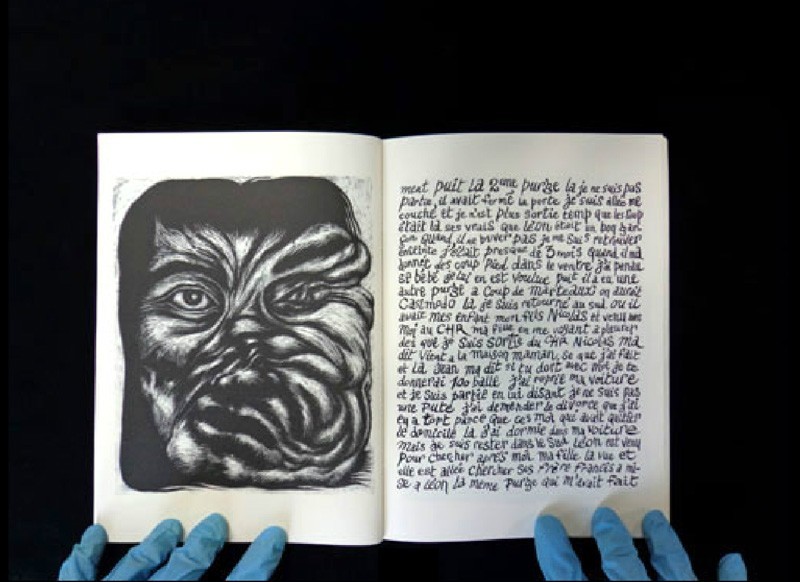 ment puit la 2eme purge la je ne suis pas
partie, il avait fermé la porte je suis allée me
couché et je n'est plus sortie temp que les coup
était la ses vrais que Léon était un bon gar-
çon quand il ne buver pas je me suis retrouver
enceinte j'était presque de 3 mois quand il m'a
donnet des coup pied dans le ventre j'ai perdu
se bébé je lui en est voulue puit il a eu une
autre purge a coup de marteaux on aurait
Casimodo la je suis retourné au sud ou il
avait mes enfant mon fils Nicolas et venu avec
moi au CHR ma fille en me voyant a pleurer
des que je suis sortie du CHR Nicolas ma
dit vient a la maison maman, se que j'ai fait
et la Jean ma dit si tu dort avec moi je te
donnerai 100 balle j'ai reprie ma voiture
et je suis partie en lui disant je ne suis pas
une pute j'ai demender le divorce que j'ai
eu a tort parce que ces moi qui avait quitter
le domicile la j'ai dormie dans ma voiture
mais je suis rester dans le Sud Léon est venu
pour chercher après moi ma fille la vue et
elle est allée chercher sus frère Francis a mi-
se a Léon la même purge qui m'avait fait